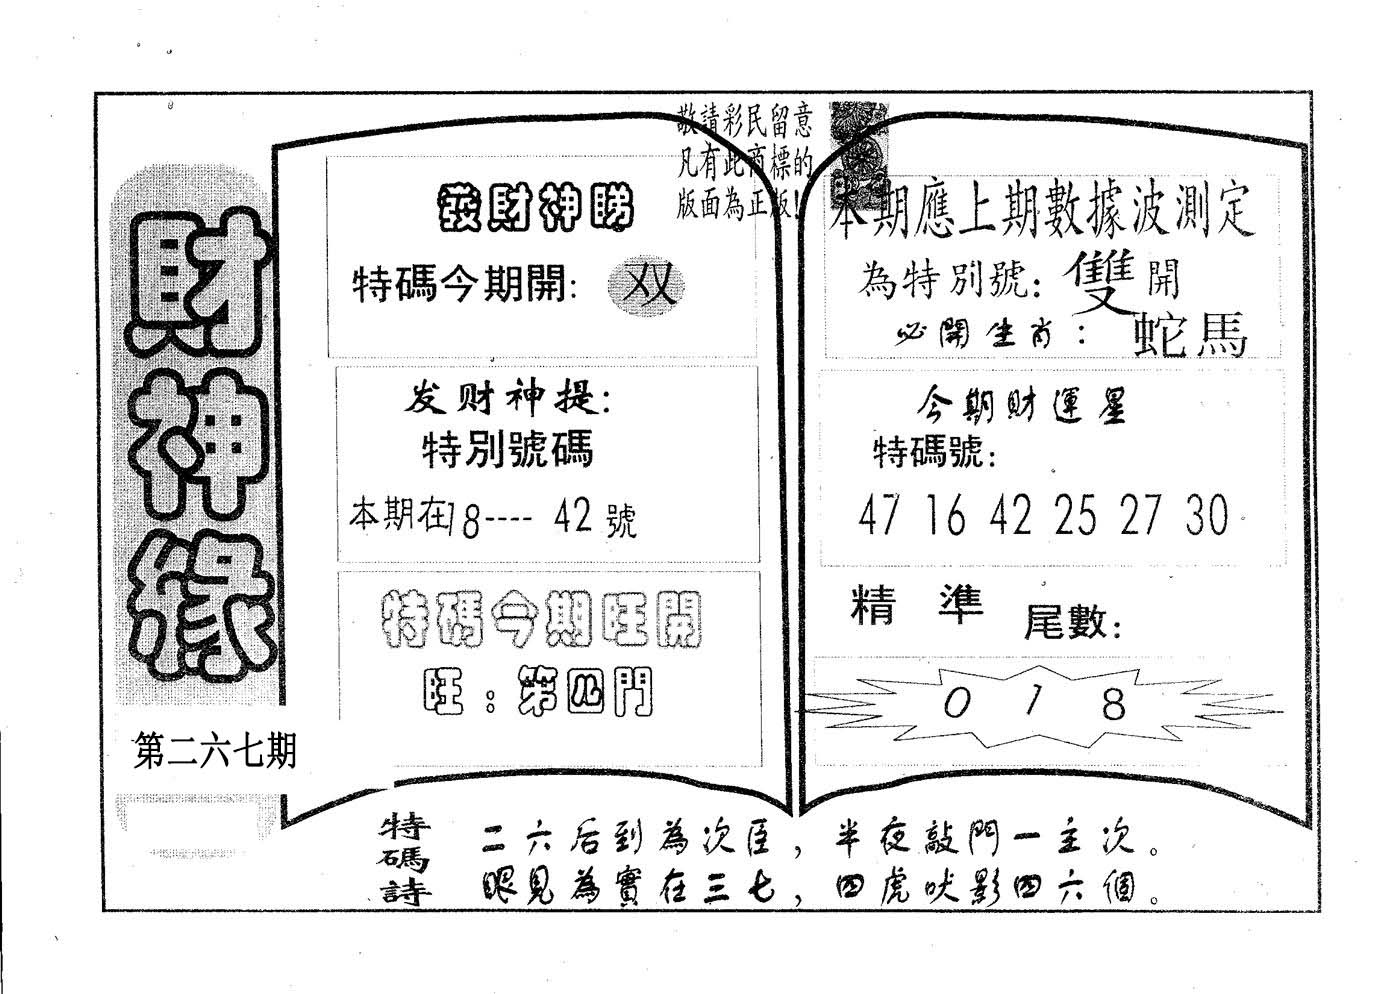 財神緣
第二六七期
敬請彩民留意
凡有此商標的
版面為正版!
發財神賜
特碼今期開: 双
发财神提:
特別號碼
本期在18---- 42號
特碼今期旺開
旺:第四門
本期應上期數據波測定
為特別號: 雙開
必開生肖: 蛇馬
今期財運星
特碼號:
47 16 42 25 27 30
精 準 尾數:
0 1 8
特碼詩
二六后到為次臣,半夜敲門一主次。
眼見為實在三七,四虎吠影四六個。